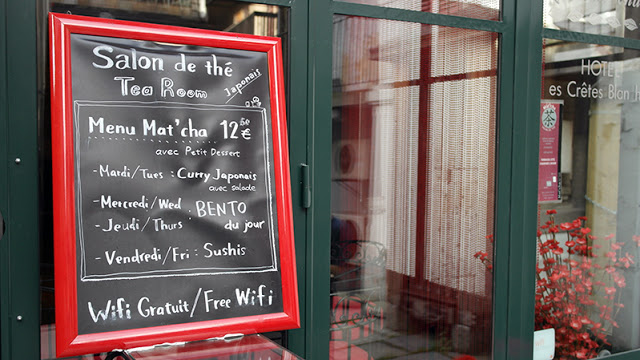 Salon de thé
Tea Room
Japonais
Menu Mat'cha 12,50€
avec Petit Dessert
- Mardi/Tues : Curry Japonais
avec salade
- Mercredi/Wed
- Jeudi/Thurs : BENTO
du jour
- Vendredi/Fri : Sushis
Wifi Gratuit/Free Wifi
HOTEL
es Crêtes Blan
茶